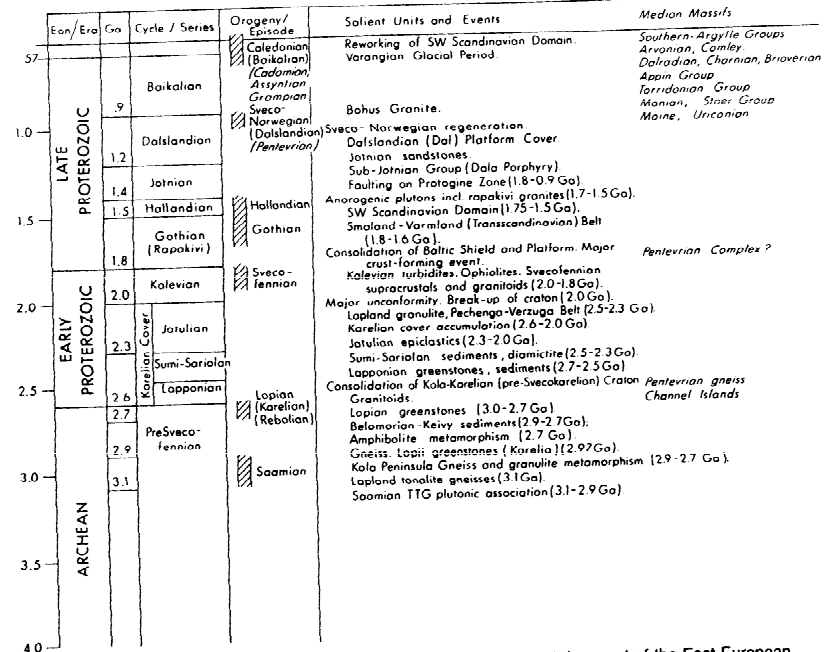 Eon/Era Ga Cycle / Series Orogeny/ Episode Salient Units and Events Median Massifs
57
Baikalian
.9
1.0
LATE PROTEROZOIC
Dalslandian
1.2
Jotnian
1.4
Hallandian
1.5
1.5
Gothian
(Rapakivi)
1.8
Kalevian
2.0
2.0
EARLY PROTEROZOIC
Karelian Cover
Jatulian
2.3
Sumi-Sariolan
Lapponian
2.5
2.6
2.7
PreSveco-
fennian
2.9
3.0
3.1
ARCHEAN
3.5
4.0
Caledonian
(Baikalian)
(Cadomian,
Assyntian
Grampian
Sveco-
Norwegian
(Dalslandian)
(Pentevrian)
Hallandian
Gothian
Sveco-
fennian
Lopian
(Karelian)
(Rebolian)
Saamian
Reworking of SW Scandinavian Domain.
Varangian Glacial Period.
Bohus Granite.
Sveco-Norwegian regeneration
Dalslandian (Dal) Platform Cover.
Jotnian sandstones.
Sub-Jotnian Group (Dala Porphyry).
Faulting on Protogine Zone (1.8-0.9 Ga).
Anorogenic plutons incl. rapakivi granites (1.7-1.5 Ga).
SW Scandinavian Domain (1.75-1.5 Ga).
Smaland-Varmland (Transscandinavian) Belt
(1.8-1.6 Ga).
Consolidation of Baltic Shield and Platform. Major
crust-forming event.
Kalevian turbidites. Ophiolites. Svecofennian
supracrustals and granitoids (2.0-1.8 Ga).
Major unconformity. Break-up of craton (2.0 Ga).
Lapland granulite, Pechenga-Verzuga Belt (2.5-2.3 Ga).
Karelian cover accumulation (2.6-2.0 Ga).
Jatulian epiclastics (2.3-2.0 Ga).
Sumi-Sariolan sediments, diamictite (2.5-2.3 Ga).
Lapponian greenstones, sediments (2.7-2.5 Ga)
Consolidation of Kola-Karelian (pre-Svecokarelian) Craton
Granitoids.
Lopian greenstones (3.0-2.7 Ga).
Belomorian-Keivy sediments (2.9-2.7 Ga).
Amphibolite metamorphism (2.7 Ga).
Gneiss. Lopii greenstones (Karelia) (2.97 Ga).
Kola Peninsula Gneiss and granulite metamorphism (2.9-2.7 Ga).
Lapland tonalite gneisses (3.1 Ga)
Saamian TTG plutonic association (3.1-2.9 Ga)
Southern-Argylle Groups
Arvonian, Comley.
Dalradian, Charnian, Brioverian
Appin Group
Torridonian Group
Monian, Stoer Group
Moine, Uriconian
Pentevrian Complex ?
Pentevrian gneiss
Channel Islands
of the East European